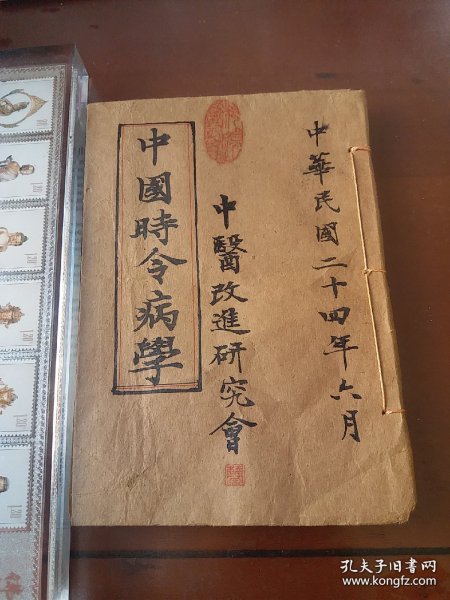 中華民國二十四年六月
中醫改進研究會
中國時令病學
孔夫子旧书网
www.kongfz.com